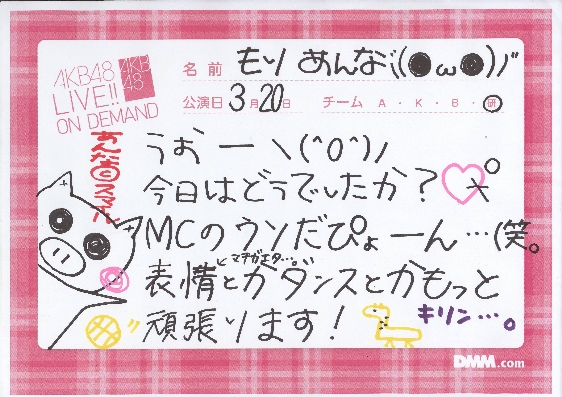 AKB48
LIVE!!
ON DEMAND
AKB
48
名前 もり あんな ((●ω●))
公演日 3月20日 チーム A・K・B・研
うおー \(^O^)/
今日はどうでしたか?
MCのウソだぴょーん…(笑。
マチガエタ…
表情とかダンスとかもっと
頑張ります!
キリン…。
DMM.com